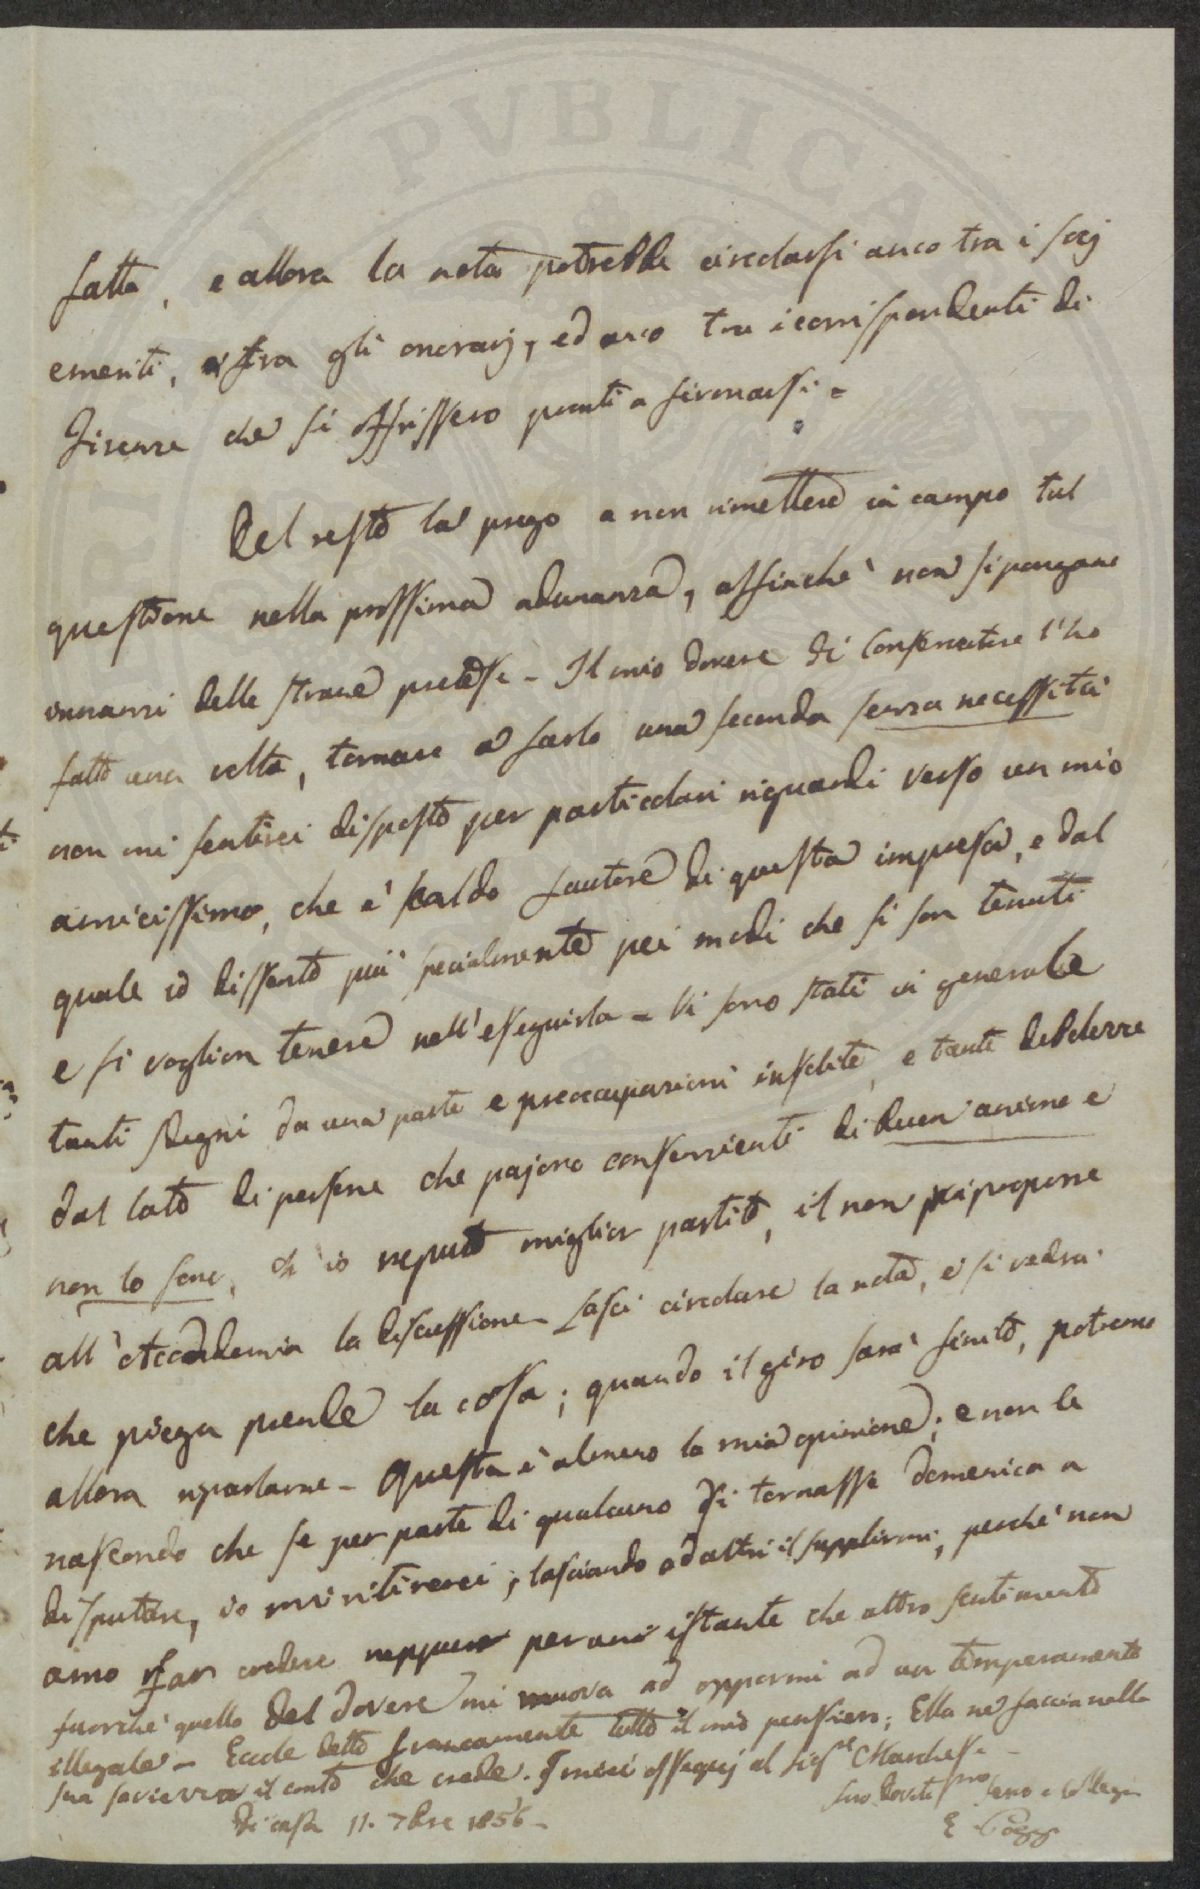 PVBLICA
fatta, e allora la nota potrebbe circolarsi anco tra i socj
emeriti, e tra gli onorarj, ed anco tra i corrispondenti di
Firenze che si offrissero pronti a firmarsi =
Del resto la prego a non rimettere in campo tal
questione nella prossima adunanza, affinchè non si pongano
innanzi delle strane pretese - Il mio dovere di Conservatore l'ho
fatto una volta, tornare a farlo una seconda senza necessità
non mi sentirei disposto per particolari riguardi verso un mio
amicissimo, che è caldo fautore di questa impresa, e dal
quale io dissento più specialmente pei modi che si son tenuti
e si voglion tenere nell'eseguirla - Vi sono stati in generale
tanti sdegni da una parte e preoccupazioni insolite, e tante debolezze
dal lato di persone che pajono consenzienti di buon animo e
non lo sono, ch'io reputo miglior partito, il non riproporre
all'Accademia la discussione - Lasci circolare la nota, e si vedrà
che piega prende la cosa; quando il giro sarà finito, potremo
allora riparlarne - Questa è almeno la mia opinione; e non le
nascondo che se per parte di qualcuno si tornasse domenica a
disputare, io mi ritirerei, lasciando ad altri il supplirmi, perchè non
amo far credere neppure per uno istante che altro sentimento
fuorchè quello del dovere mi muova ad oppormi ad un temperamento
illegale - Eccole detto francamente tutto il mio pensiero; Ella ne faccia nella
sua saviezza il conto che crede. I miei ossequj al Sig.re Marchese -
Suo Devotissimo Servo e Collega
Di casa 11. 7bre 1856 -
E. Poggi